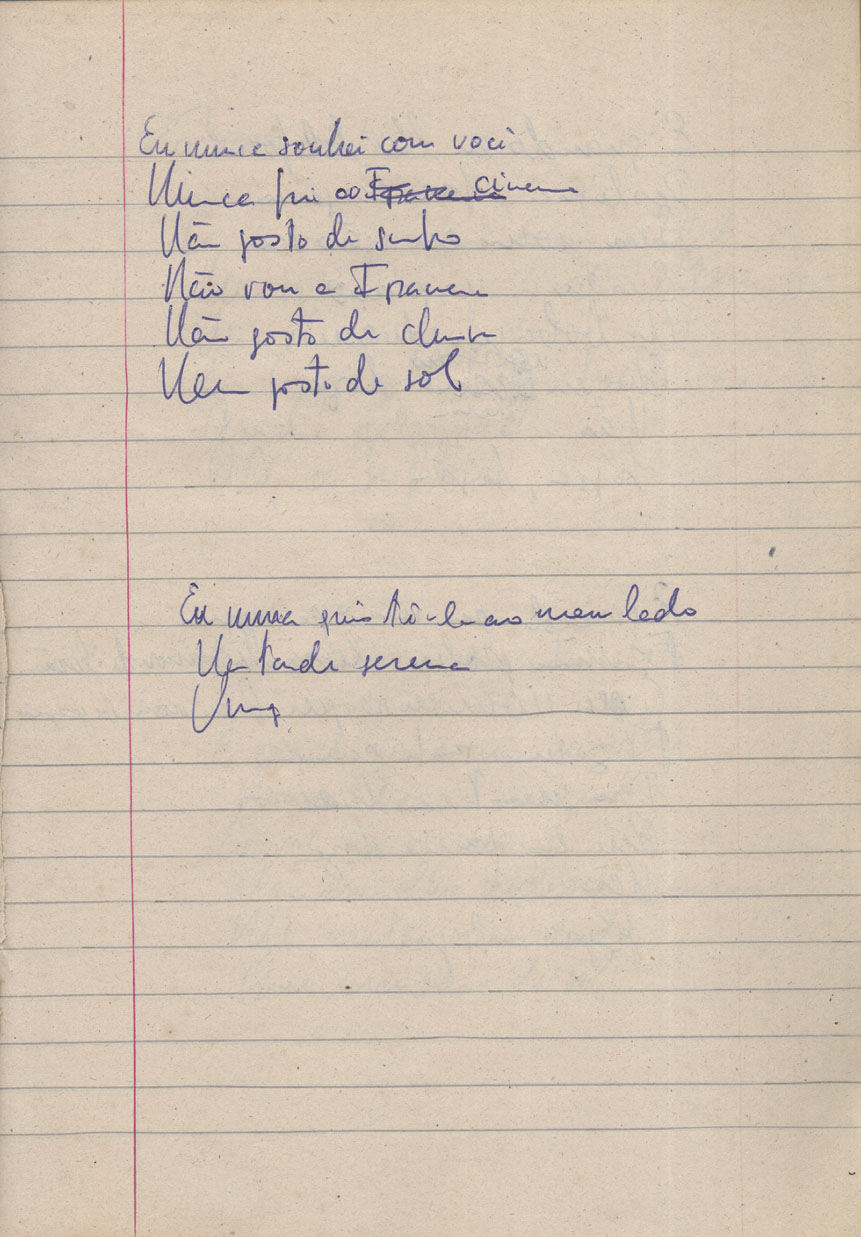 Eu nunca sonhei com você
Nunca fui ao Ipanema cinema
Não gosto de samba
Não vou a Ipanema
Não gosto de chuva
Nem gosto de sol
Eu nunca quis tê-la ao meu lado
tarde serena